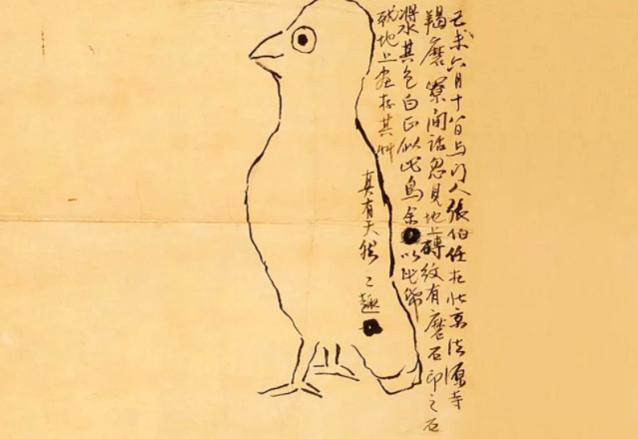 己未六月十八日与门人張伯任在北京法源寺
羯磨寮閒話忽見地上磚紋有磨石印之石
漿其色白正似此鳥余以此紙
就地上画存其艸
真有天然之趣